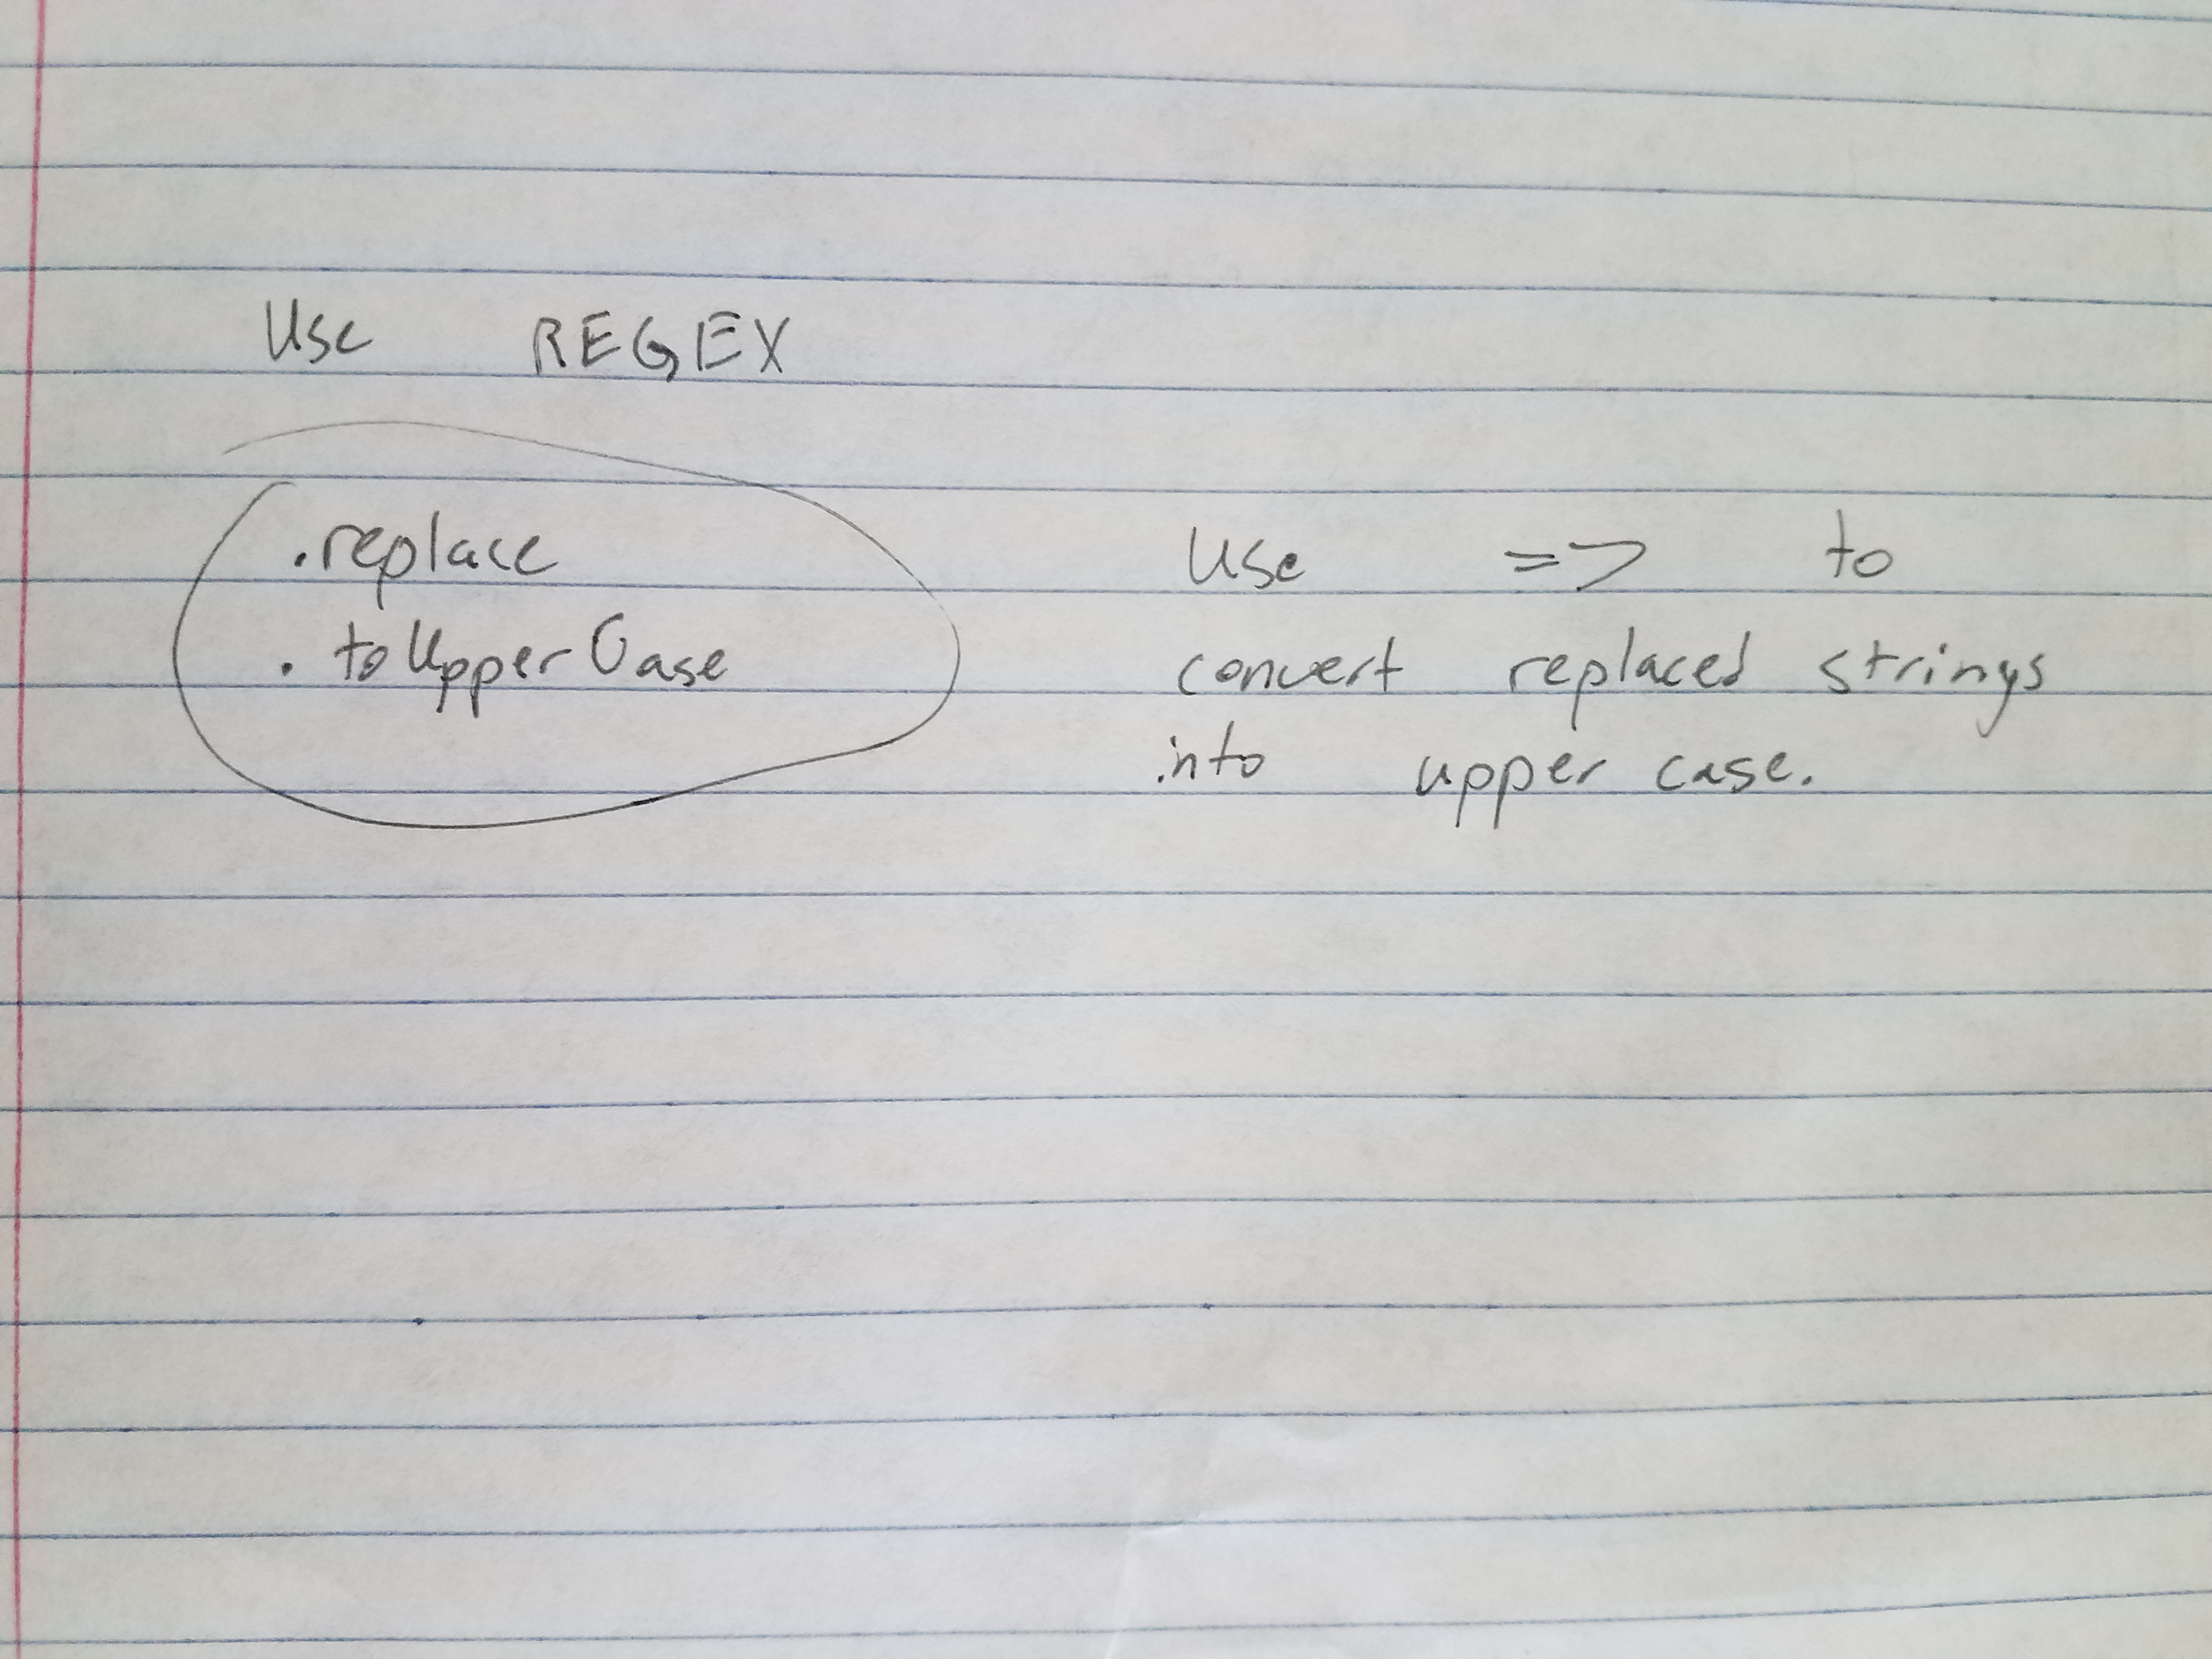 Use REGEX
.replace
. toUpperCase
Use => to
convert replaced strings
into upper case.